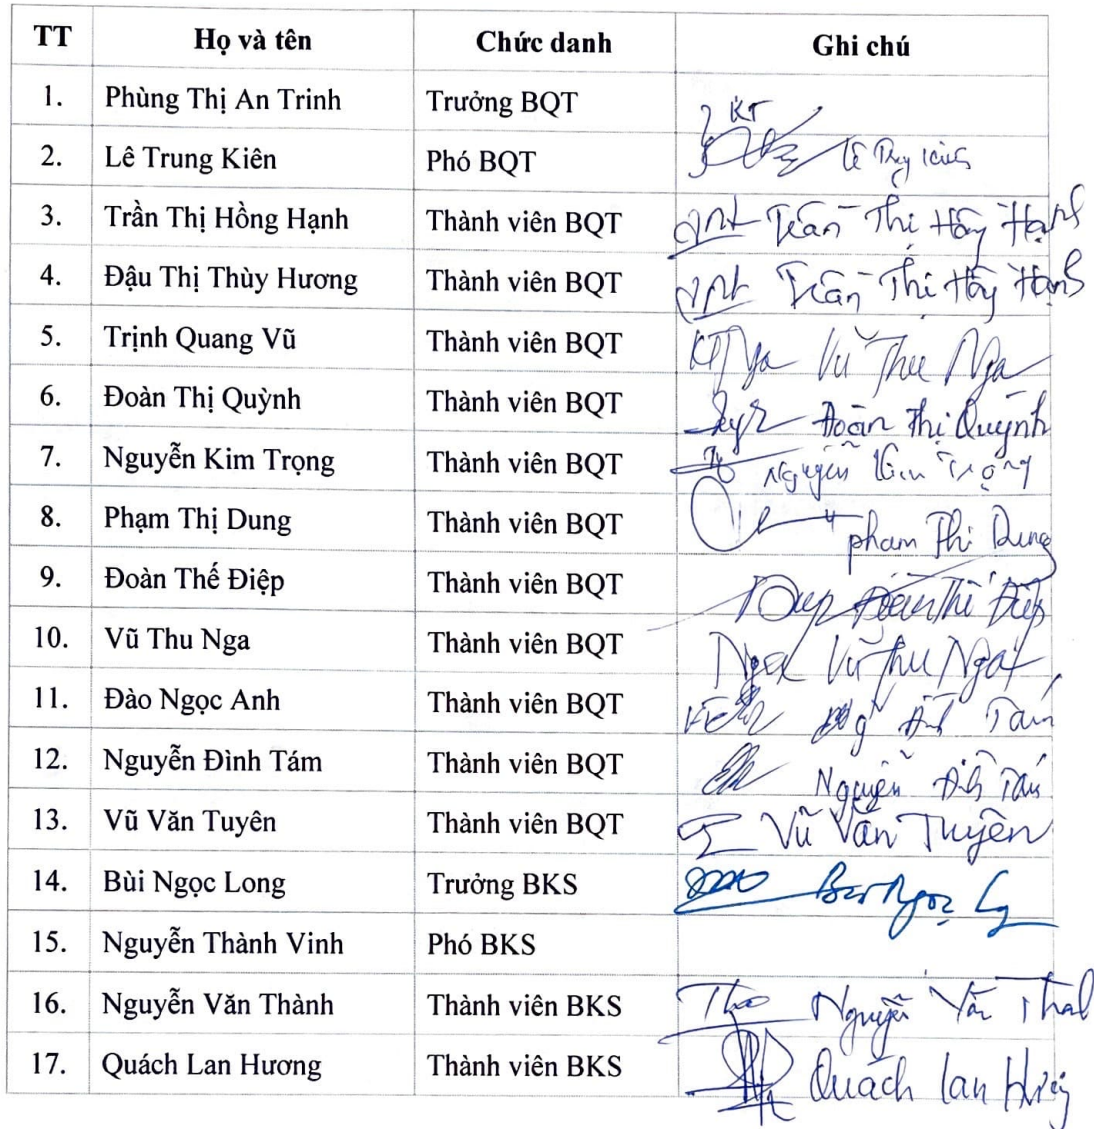 TT Họ và tên Chức danh Ghi chú
1. Phùng Thị An Trinh Trưởng BQT KT
2. Lê Trung Kiên Phó BQT Lê
3. Trần Thị Hồng Hạnh Thành viên BQT Trần Thị Hồng Hạnh
4. Đậu Thị Thùy Hương Thành viên BQT Trần Thị Hồng Hạnh
5. Trịnh Quang Vũ Thành viên BQT KT Nga Vũ Thu Nga
6. Đoàn Thị Quỳnh Thành viên BQT Đoàn Thị Quỳnh
7. Nguyễn Kim Trọng Thành viên BQT Nguyễn Kim Trọng
8. Phạm Thị Dung Thành viên BQT phạm Thị Dung
9. Đoàn Thế Điệp Thành viên BQT Đoàn Thế Điệp
10. Vũ Thu Nga Thành viên BQT Nga Vũ Thu Nga
11. Đào Ngọc Anh Thành viên BQT Đình Tám
12. Nguyễn Đình Tám Thành viên BQT Nguyễn Đình Tám
13. Vũ Văn Tuyên Thành viên BQT Vũ Văn Tuyên
14. Bùi Ngọc Long Trưởng BKS Bùi Ngọc Long
15. Nguyễn Thành Vinh Phó BKS
16. Nguyễn Văn Thành Thành viên BKS Nguyễn Văn Thành
17. Quách Lan Hương Thành viên BKS Quách Lan Hương